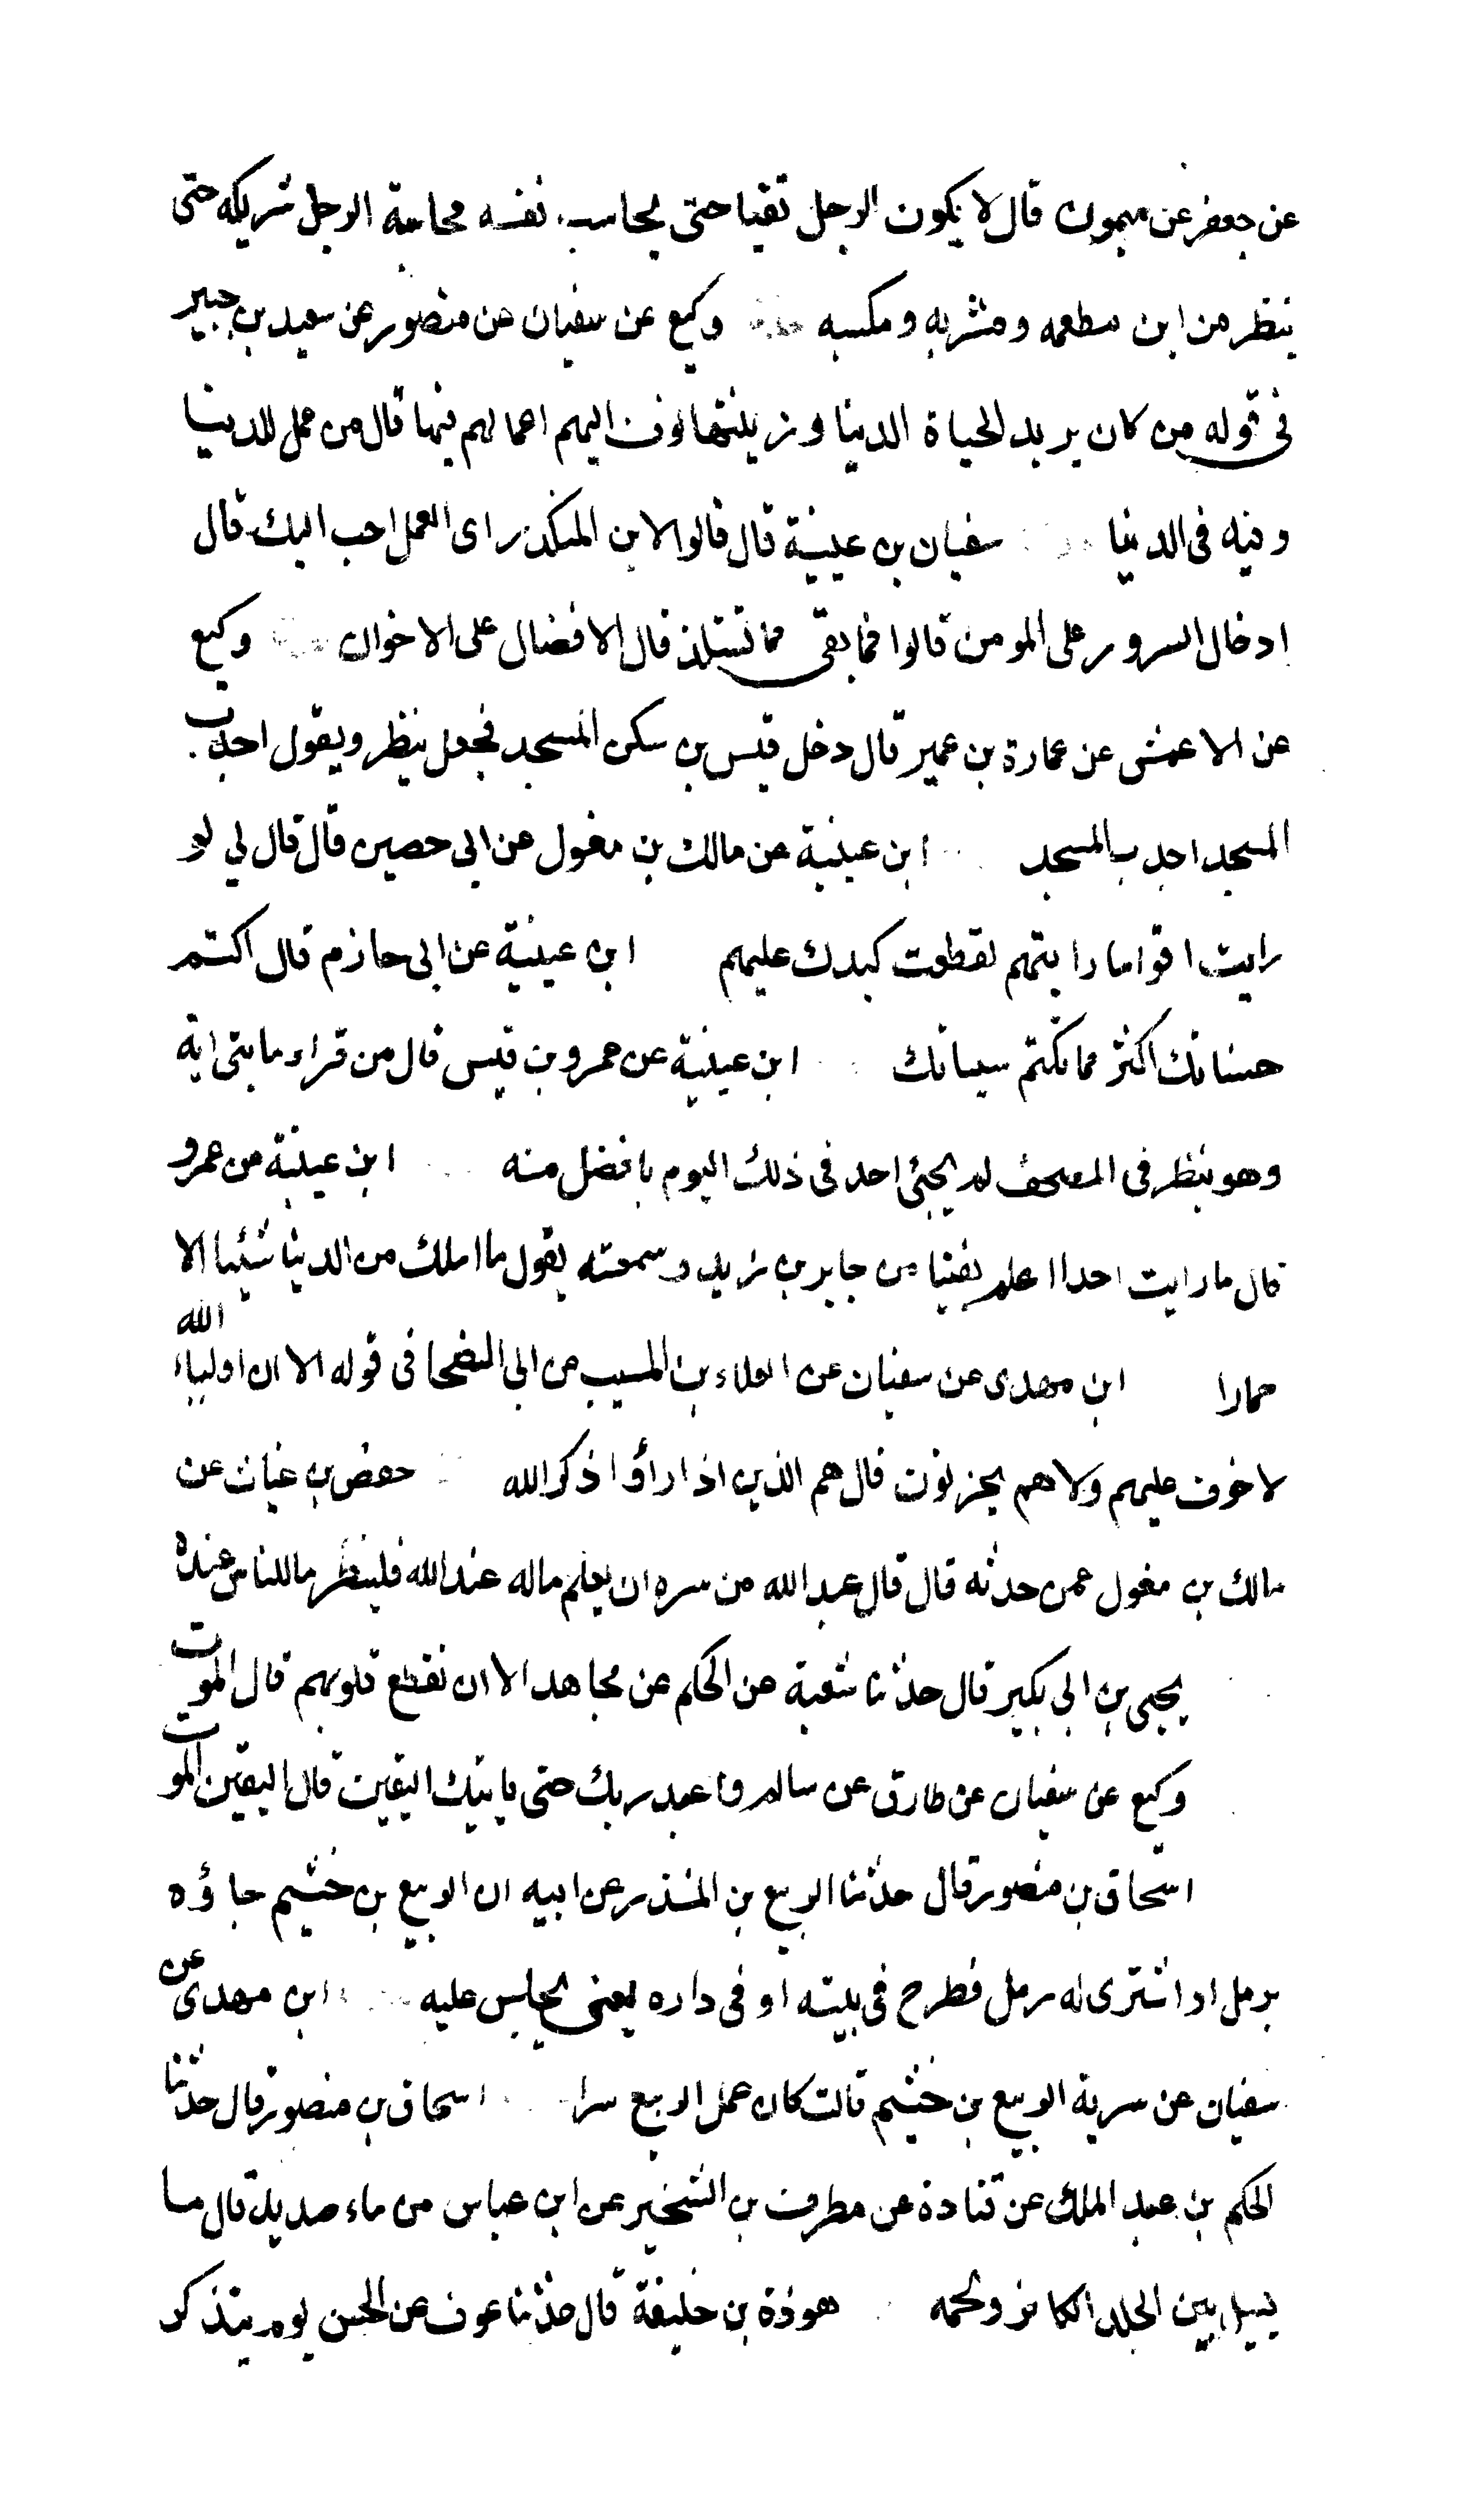 عن جعفر عن ميمون قال لا يكون الرجل تقيا حتى يحاسب نفسه محاسبة الرجل شريكه حتى
ينظر من اين مطعمه ومشربه ومكسبه وكيع عن سفيان عن منصور عن سعيد بن جبير
فى قوله من كان يريد الحياة الدنيا وزينتها نوف اليهم اعمالهم فيها قال من عمل للدنيا
وفيه فى الدنيا سفيان بن عيينة قال قالوا لابن المنكدر اى العمل احب اليك قال
ادخال السرور على المومن قالوا فما بقى مما تستلذ قال الافضال على الاخوان وكيع
عن الاعمش عن عمارة بن عمير قال دخل قيس بن سكن المسجد فجعل ينظر ويقول اجدب
المسجد اجدب المسجد ابن عيينة عن مالك بن مغول عن ابى حصين قال قال لي لو
رايت اقواما رايتهم لقطعت كبدك عليهم ابن عيينة عن ابى حازم قال اكتم
حسناتك اكثر مما تكتم سيياتك ابن عيينة عن عمرو بن قيس قال من قراء مايتى اية
وهو ينظر فى المصحف لم يجئ احد فى ذلك اليوم بافضل منه ابن عيينة عن عمرو
قال ما رايت احدا اعلم بفتيا من جابر بن زيد وسمعته يقول ما املك من الدنيا شيئا الا
حمارا ابن مهدى عن سفيان عن العلاء بن المسيب عن ابى الضحا فى قوله الا ان اولياء الله
لا خوف عليهم ولا هم يحزنون قال هم الذين اذا رأوا ذكر الله حفص بن غياث عن
مالك بن مغول عمن حدثه قال قال عبد الله من سره ان يعلم ماله عند الله فلينظر ما للناس عنده
يحيى بن ابى بكير قال حدثنا شعبة عن الحكم عن مجاهد الا ان تقطع قلوبهم قال الموت
وكيع عن سفيان عن طارق عن سالم واعبد ربك حتى ياتيك اليقين قال اليقين الموت
اسحاق بن منصور قال حدثنا الربيع بن المنذر عن ابيه ان الربيع بن خثيم جاؤه
برمل او اشترى له رمل فطرح فى بيته او فى داره يعنى يجلس عليه ابن مهدى عن
سفيان عن سرية الربيع بن خثيم قالت كان عمل الربيع سرا اسحاق بن منصور قال حدثنا
الحكم بن عبد الملك عن قتادة عن مطرف بن الشخير عن ابن عباس من ماء صديد قال ما
يسيل بين الجلد الكافر ولحمه هوذة بن خليفة قال حدثنا عوف عن الحسن يوم يتذكر